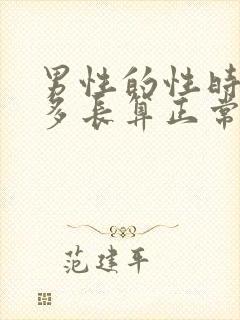 男性的性时
多长算正常
范建平